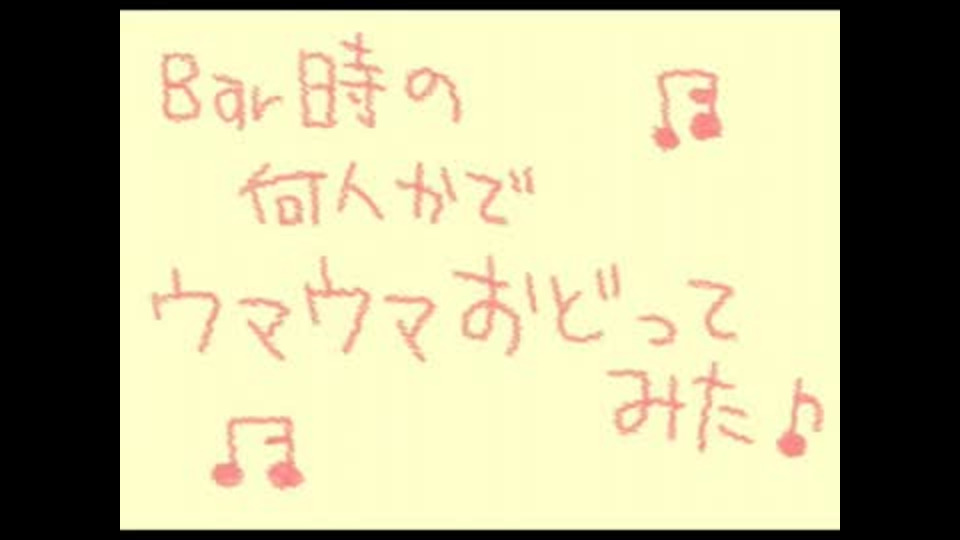 Bar時の
何人かで
ウマウマおどって
みた♪